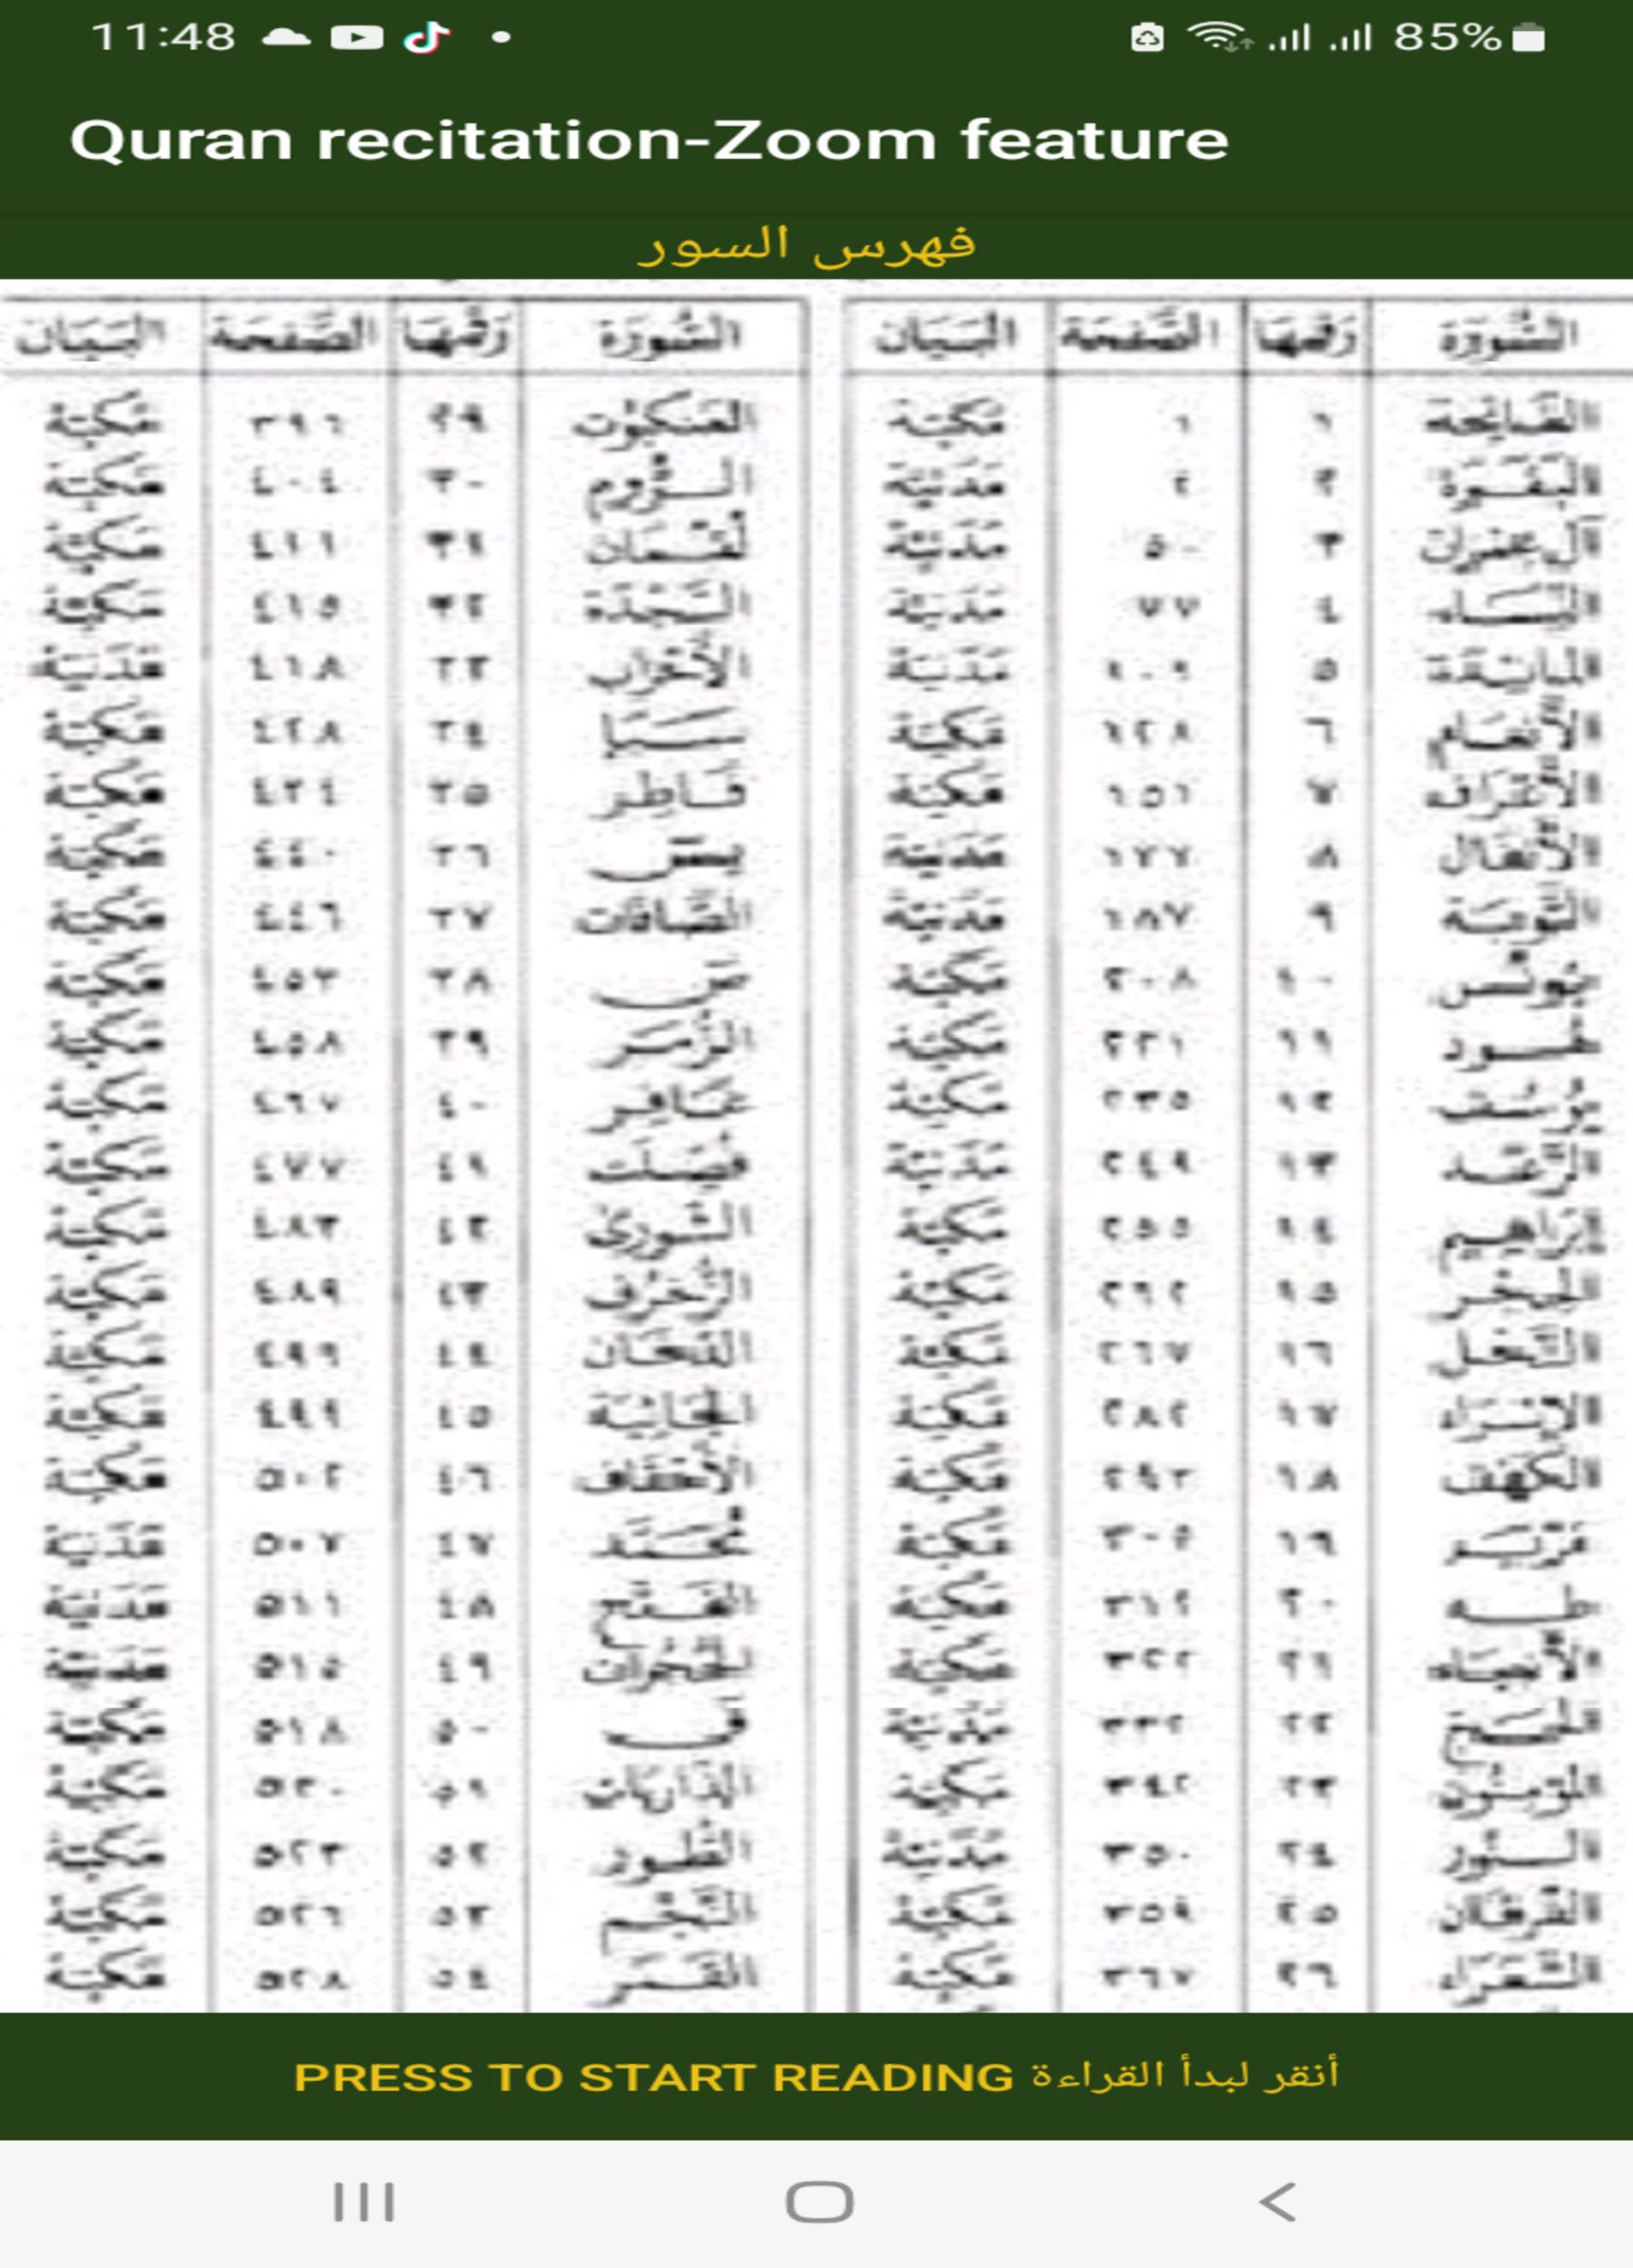 11:48 85%
Quran recitation-Zoom feature
فهرس السور
السُّورَة رَقْمُهَا الصَّفحَة البَيَان
الفَاتِحَة ١ ١ مَكِّيَّة
البَقَرَة ٢ ٢ مَدَنِيَّة
آل عِمْرَان ٣ ٥٠ مَدَنِيَّة
النِّسَاء ٤ ٧٧ مَدَنِيَّة
المَائِدَة ٥ ١٠٦ مَدَنِيَّة
الأَنْعَام ٦ ١٢٨ مَكِّيَّة
الأَعْرَاف ٧ ١٥١ مَكِّيَّة
الأَنْفَال ٨ ١٧٧ مَدَنِيَّة
التَّوْبَة ٩ ١٨٧ مَدَنِيَّة
يُونُس ١٠ ٢٠٨ مَكِّيَّة
هُود ١١ ٢٢١ مَكِّيَّة
يُوسُف ١٢ ٢٣٥ مَكِّيَّة
الرَّعْد ١٣ ٢٤٩ مَدَنِيَّة
إِبْرَاهِيم ١٤ ٢٥٥ مَكِّيَّة
الحِجْر ١٥ ٢٦٢ مَكِّيَّة
النَّحْل ١٦ ٢٦٧ مَكِّيَّة
الإِسْرَاء ١٧ ٢٨٢ مَكِّيَّة
الكَهْف ١٨ ٢٩٣ مَكِّيَّة
مَرْيَم ١٩ ٣٠٥ مَكِّيَّة
طه ٢٠ ٣١٢ مَكِّيَّة
الأَنْبِيَاء ٢١ ٣٢٢ مَكِّيَّة
الحَج ٢٢ ٣٣٢ مَدَنِيَّة
المُؤْمِنُون ٢٣ ٣٤٢ مَكِّيَّة
النُّور ٢٤ ٣٥٠ مَدَنِيَّة
الفُرْقَان ٢٥ ٣٥٩ مَكِّيَّة
الشُّعَرَاء ٢٦ ٣٦٧ مَكِّيَّة
السُّورَة رَقْمُهَا الصَّفحَة البَيَان
العَنكَبُوت ٢٩ ٣٩٦ مَكِّيَّة
الرُّوم ٣٠ ٤٠٤ مَكِّيَّة
لُقْمَان ٣١ ٤١١ مَكِّيَّة
السَّجْدَة ٣٢ ٤١٥ مَكِّيَّة
الأَحْزَاب ٣٣ ٤١٨ مَدَنِيَّة
سَبَإ ٣٤ ٤٢٨ مَكِّيَّة
فَاطِر ٣٥ ٤٣٤ مَكِّيَّة
يسٓ ٣٦ ٤٤٠ مَكِّيَّة
الصَّافَّات ٣٧ ٤٤٦ مَكِّيَّة
صٓ ٣٨ ٤٥٣ مَكِّيَّة
الزُّمَر ٣٩ ٤٥٨ مَكِّيَّة
غَافِر ٤٠ ٤٦٧ مَكِّيَّة
فُصِّلَت ٤١ ٤٧٧ مَكِّيَّة
الشُّورَىٰ ٤٢ ٤٨٣ مَكِّيَّة
الزُّخْرُف ٤٣ ٤٨٩ مَكِّيَّة
الدُّخَان ٤٤ ٤٩٦ مَكِّيَّة
الجَاثِيَة ٤٥ ٤٩٩ مَكِّيَّة
الأَحْقَاف ٤٦ ٥٠٢ مَكِّيَّة
مُحَمَّد ٤٧ ٥٠٧ مَدَنِيَّة
الفَتْح ٤٨ ٥١١ مَدَنِيَّة
الحُجُرَات ٤٩ ٥١٥ مَدَنِيَّة
قٓ ٥٠ ٥١٨ مَكِّيَّة
الذَّارِيَات ٥١ ٥٢٠ مَكِّيَّة
الطُّور ٥٢ ٥٢٣ مَكِّيَّة
النَّجْم ٥٣ ٥٢٦ مَكِّيَّة
القَمَر ٥٤ ٥٢٨ مَكِّيَّة
PRESS TO START READING أنقر لبدأ القراءة